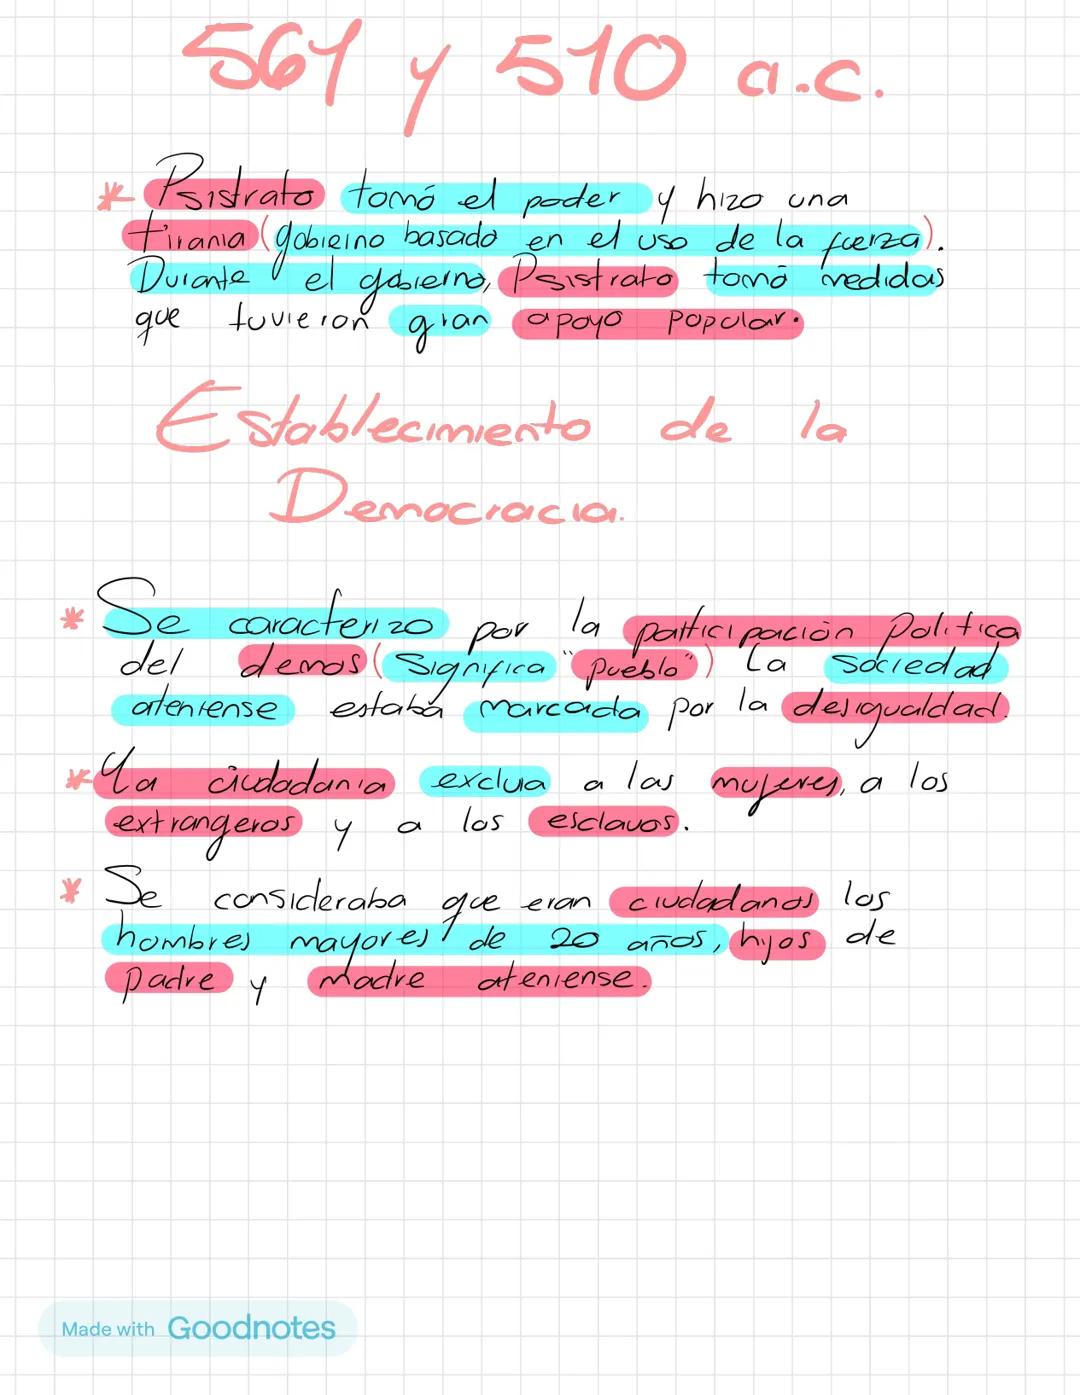 561 y 510 a.c.
* Psistrato tomó el poder y hizo una
tirania (gobierno basado en el uso de la fuerza).
Durante el gobierno, Psistrato tomó medidas
que tuvieron gran apoyo popular.
Establecimiento de la
Democracia.
* Se caracterizo por la participación Politica
del demos (Significa "Pueblo") La sociedad
ateniense estaba marcada por la desigualdad.
* La ciudadania excluia a las mujeres, a los
extrangeros y a los esclavos.
* Se consideraba que eran ciudadanos los
hombres mayores de 20 años, hijos de
padre y madre ateniense.
Made with Goodnotes